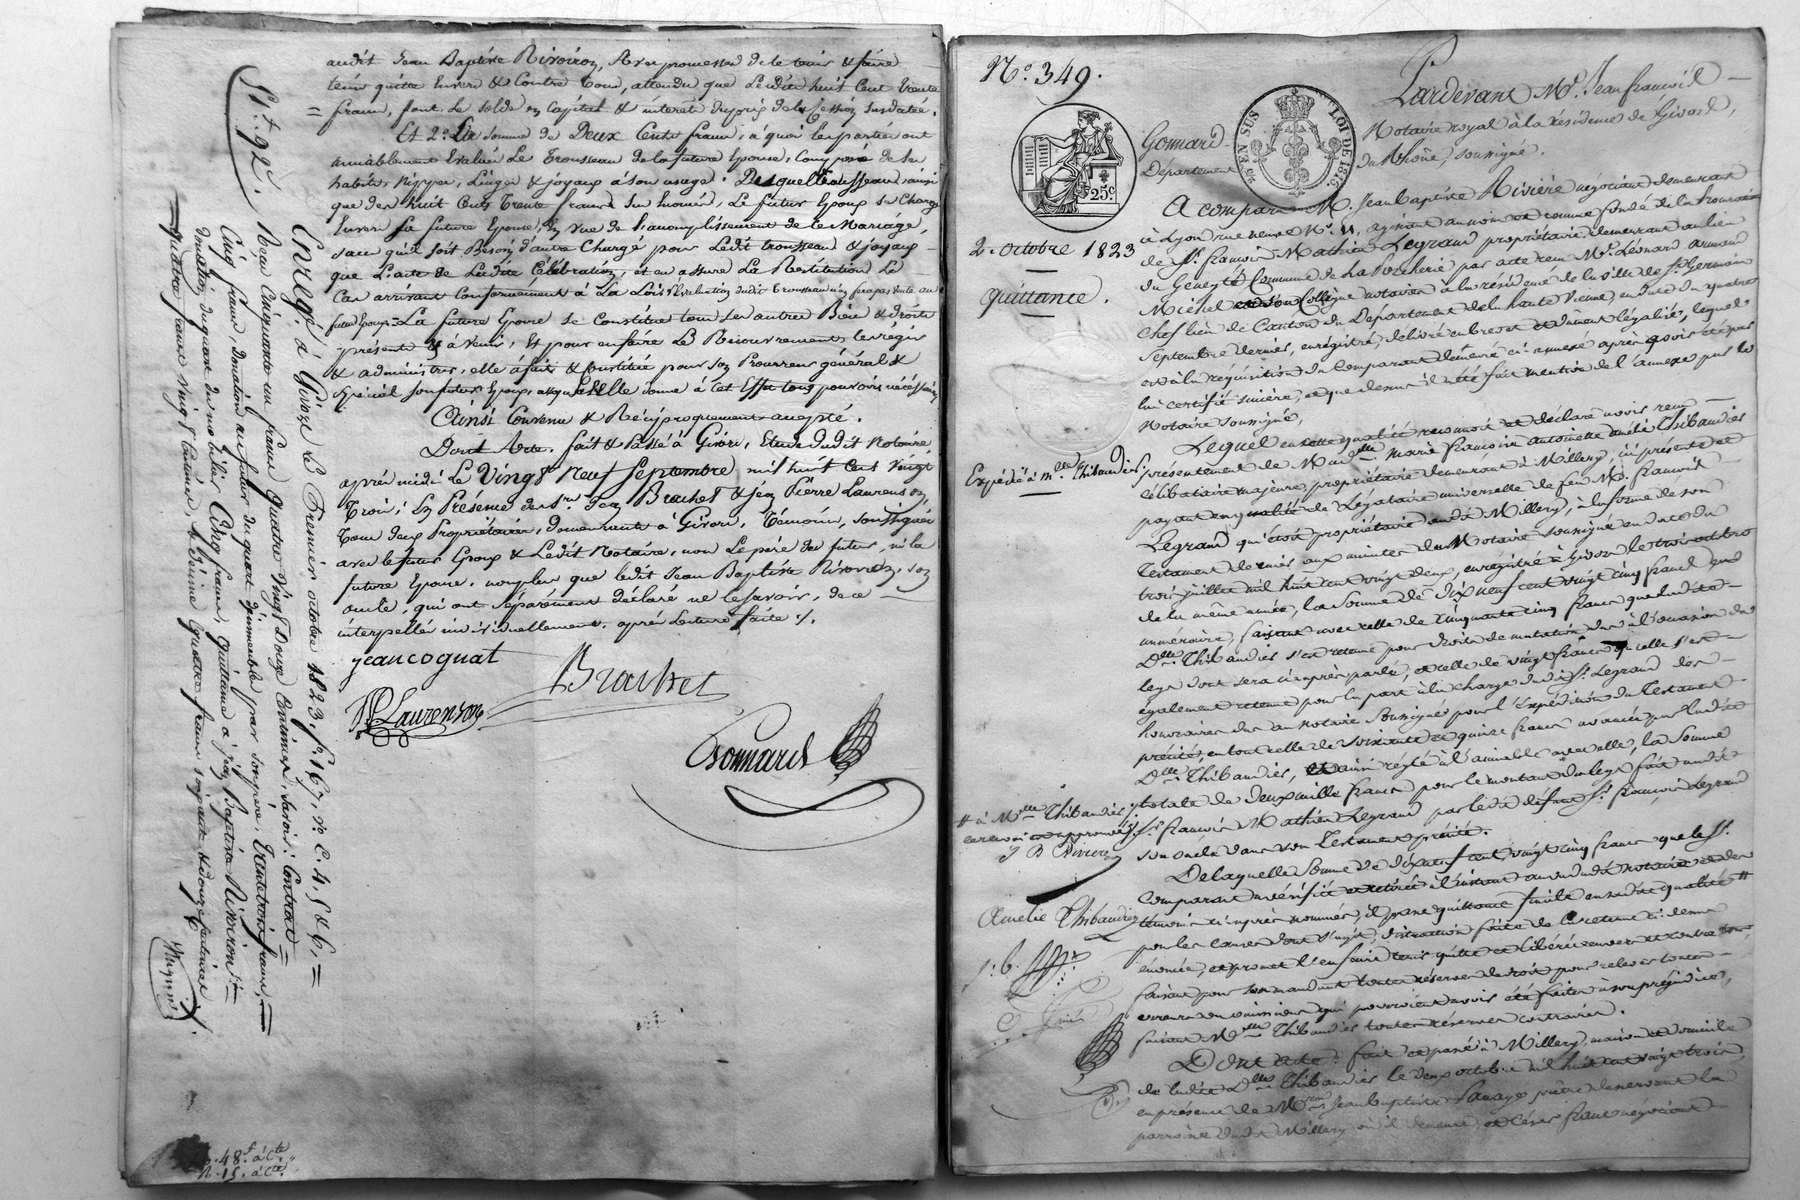 audit Jean Baptiste Rivoiron, avec promesse de le tenir & faire
tenir quitte envers & Contre Tous, attendu que Lesdits huit Cent trente
francs, font le solde en Capital & intérêt du prix de la Cession susdatée.
Et 2º. La somme de Deux Cents francs, à quoi les parties ont
amiablement Evalué Le Trousseau de la future Epouse, Composé de ses
habits, nippes, Linges & joyaux à son usage. Desquels trousseau, ainsi
que des huit Cents Trente francs en numéraire, Le futur Epoux se Charge
Envers La future Epouse, En vue de l'accomplissement de le Mariage,
sans qu'il soit Besoin d'autre Charge pour Ledit trousseau & joyaux
que L'acte de Ladite Célébration, et en assure La Restitution Le
Cas arrivant Conformément à La Loi. L'évaluation dudit Trousseau n'en fera pas vente au
futur Epoux. = La future Epouse se Constitue tous ses autres Biens & droits
présents & à venir, Et pour en faire Le Recouvrement, les régir
& administrer, elle a fait & Constitué pour son Procureur général &
Spécial son futur Epoux, auquel Elle donne à Cet Effet tous pouvoirs nécessaires
Ainsi Convenu & Réciproquement accepté.
Dont Acte. fait & Passé à Givors, Etude dudit Notaire
après midi Le Vingt Neuf Septembre mil huit Cent Vingt
Trois; En Présence de Srs. Jean Brachet & Jean Pierre Laurenson,
Tous deux Propriétaires, demeurants à Givors, Témoins, soussignés
avec le futur Epoux & Ledit Notaire, non Le père du futur, ni la
future Epouse, non plus que ledit Jean Baptiste Rivoiron, son
oncle, qui ont séparément déclaré ne le savoir, de ce
interpellés individuellement, après Lecture faite ./.
jean cognat
Brachet
JP Laurenson
Gonnard
Enregé. à Givors Le Premier octobre 1823. fº. 167. vº. C. 4, 5 & 6, =
Reçu Cinquante un francs Quatre Vingt Douze Centimes, savoir: Contrat =
Cinq francs, Donation au futur du quart d'immeuble par son père, trente trois francs, =
donation du quart du mobilier Cinq francs, Quittance à jean Baptiste Rivoiron =
Quatre francs Vingt Centimes, & dixième Quatre francs soixante & douze Centimes ./.
48f. à Cte.
R. 15. à Cte.
Nº. 349.
25c.
25 EN SUS
LOI DE 1816.
2. Octobre 1823
Quittance.
Pardevant Me. Jean françois
Gonnard Notaire royal à la résidence de Givors,
Département du Rhône, soussigné.
A comparu M. Jean Baptiste Rivière négociant demeurant
à Lyon rue neuve Nº. 11, agissant au nom et comme fondé de la Procuration
de Sr. françois Mathieu Legrand propriétaire demeurant au lieu
du Genesté Commune de La Porcherie par acte reçu Me. Léonard armand
Michel et son Collègue notaires à la résidence de la ville de St. Germain
Chef lieu de Canton du Département de la haute Vienne, en date du quatre
septembre dernier, enregistré, délivré en brevet et dûment légalisé, lequel
est à la réquisition du Comparant demeuré ci annexé après avoir été par
lui certifié sincère, et que dessus il a été fait mention de l'annexe par le
Notaire soussigné,
Lequel en cette qualité reconnoît et déclare avoir reçu
présentement de Mademoiselle marie françoise antoinette amélie Thibaudier
célibataire majeure, propriétaire demeurant à Millery, ici présente et
payant en qualité de Légataire universelle de feu Mr. françois
Legrand qui étoit propriétaire audit Millery, à la forme de son
Testament dernier aux minutes du Notaire soussigné en date du
trois juillet mil huit cent vingt deux, enregistré à Givors le trois octobre
de la même année, la somme de dix neuf cent vingt cinq francs en
numéraire, faisant avec celle de cinquante cinq francs que ladite
Dlle. Thibaudier s'est retenue pour droits de mutation dus à l'occasion du
legs dont sera ci après parlé, et celle de vingt francs qu'elle s'est
également retenue pour la part à la charge dudit Sr. Legrand des
honoraires dus au notaire soussigné pour l'Expédition du Testament
précité, en tout celle de soixante et quinze francs avancée par ladite
Dlle. Thibaudier, et ainsi réglé à l'amiable avec elle, la somme
totale de deux mille francs pour le montant du legs fait audit
Sr. françois Mathieu Legrand par ledit défunt Sr. françois Legrand
son oncle dans son Testament précité.
De laquelle somme de dix neuf cent vingt cinq francs que le Sr.
Comparant a vérifiée et retirée à l'instant au vu dudit notaire et des
témoins ci après nommés, il passe quittance finale en sadite qualité #
pour les causes dont s'agit, distraction faite de la retenue ci dessus
énoncée, et promet l'en faire tenir quitte et libérée envers et contre tous,
faisant pour son mandant toutes réserves de droit pour relever toutes
erreurs ou omissions qui pourroient avoir été faites à son préjudice,
faisant Mlle. Thibaudier toutes réserves contraires.
Dont acte: fait et passé à Millery, maison et domicile
de ladite Dlle. Thibaudier le deux octobre mil huit cent vingt trois,
en présence de Mrs. Jean Baptiste prêtre desservant la
paroisse dudit Millery où il demeure, et négociant
Expédié à Mlle. Thibaudier.
# à Mlle. Thibaudier
ce renvoi approuvé
J B Rivière
Amélie Thibaudier